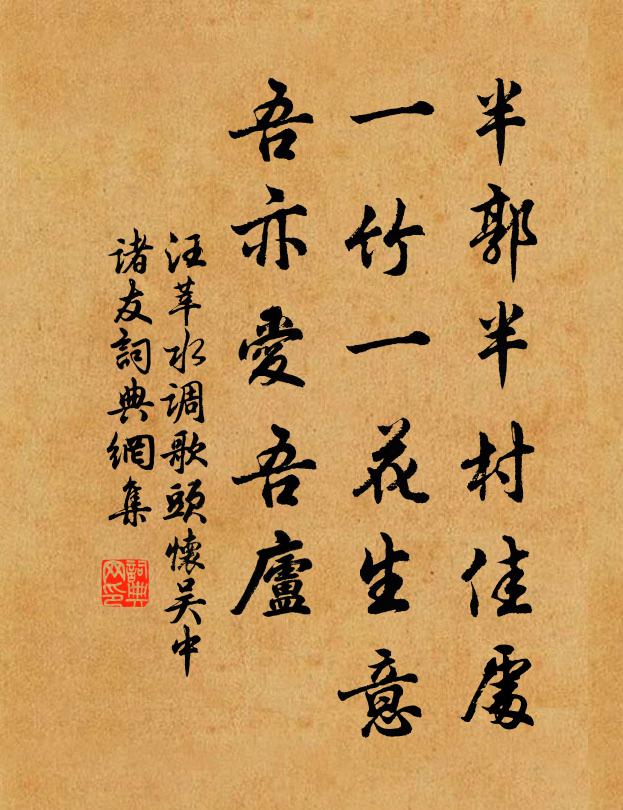 半郭半村佳處
一竹一花生意
吾亦愛吾廬
汪莘水调歌頭懷吴中
诸友詞典網集
詞典
网印